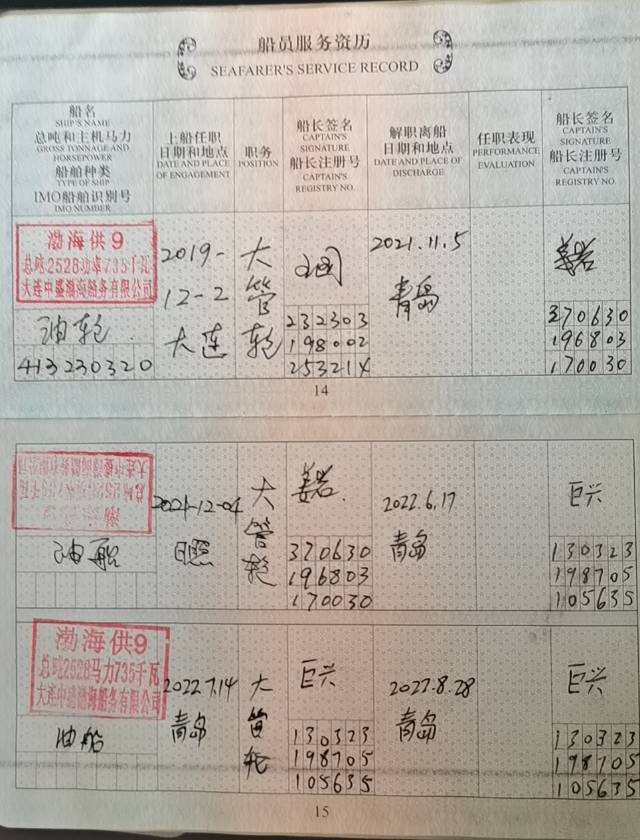 船员服务资历
SEAFARER'S SERVICE RECORD
船名
SHIP'S NAME
总吨和主机马力
GROSS TONNAGE AND
HORSEPOWER
船舶种类
TYPE OF SHIP
IMO船舶识别号
IMO NUMBER
上船任职
日期和地点
DATE AND PLACE
OF ENGAGEMENT
职务
POSITION
船长签名
CAPTAIN'S
SIGNATURE
船长注册号
CAPTAIN'S
REGISTRY NO.
解职离船
日期和地点
DATE AND PLACE OF
DISCHARGE
任职表现
PERFORMANCE
EVALUATION
船长签名
CAPTAIN'S
SIGNATURE
船长注册号
CAPTAIN'S
REGISTRY NO.
渤海供9
总吨2528功率735千瓦
大连中盛渤海船务有限公司
油轮
413230320
2019-
12-2
大连
大
管
轮
232303
198002
253214
2021.11.5
青岛
370630
196803
170030
14
大连中盛渤海船务有限公司
油船
2021-12-04
日照
大
管
轮
370630
196803
170030
2022.6.17
青岛
巨兴
130323
198705
105635
渤海供9
总吨2528马力735千瓦
大连中盛渤海船务有限公司
油船
2022.7.14
青岛
大
管
轮
巨兴
130323
198705
105635
2022.8.28
青岛
巨兴
130323
198705
105635
15